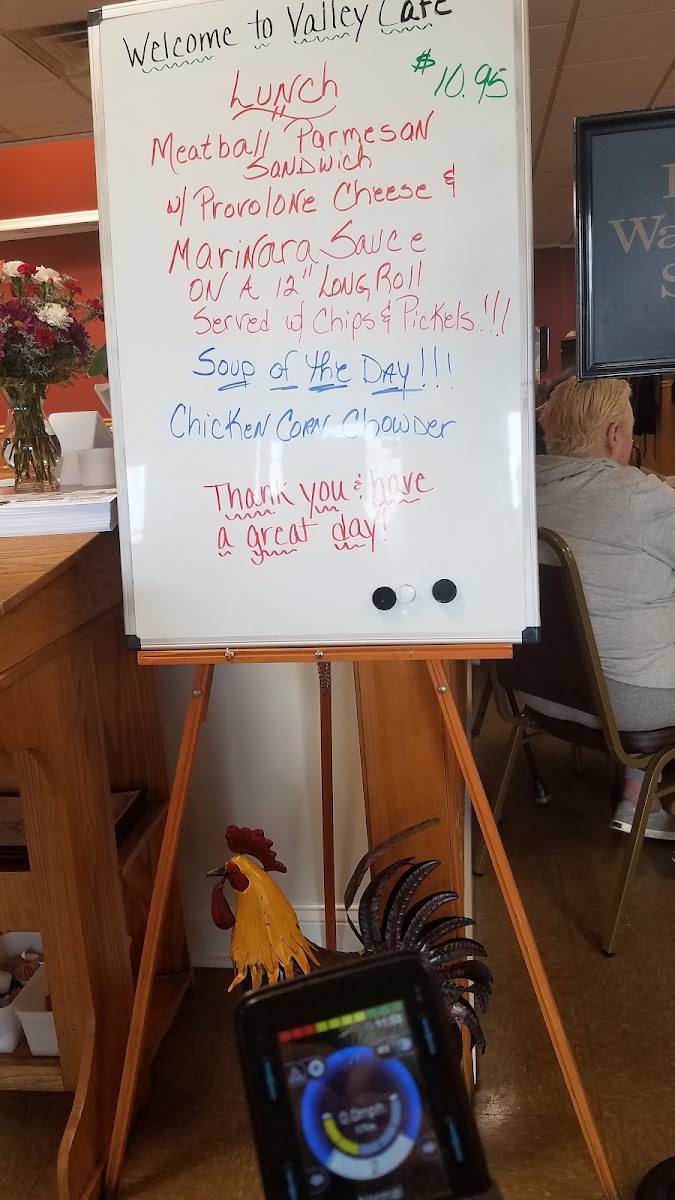 Welcome to Valley Cafe
$10.95
Lunch
Meatball Parmesan
Sandwich
w/ Provolone Cheese &
Marinara Sauce
on a 12" Long Roll
Served w/ Chips & Pickels!!!
Soup of the Day!!!
Chicken Corn Chowder
Thank you & have
a great day!
Wa
S
0.0mph
2